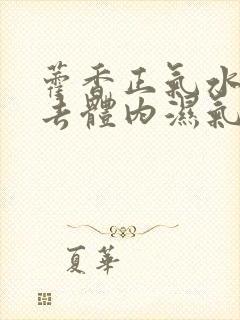 藿香正氣水
去體内濕氣
夏華